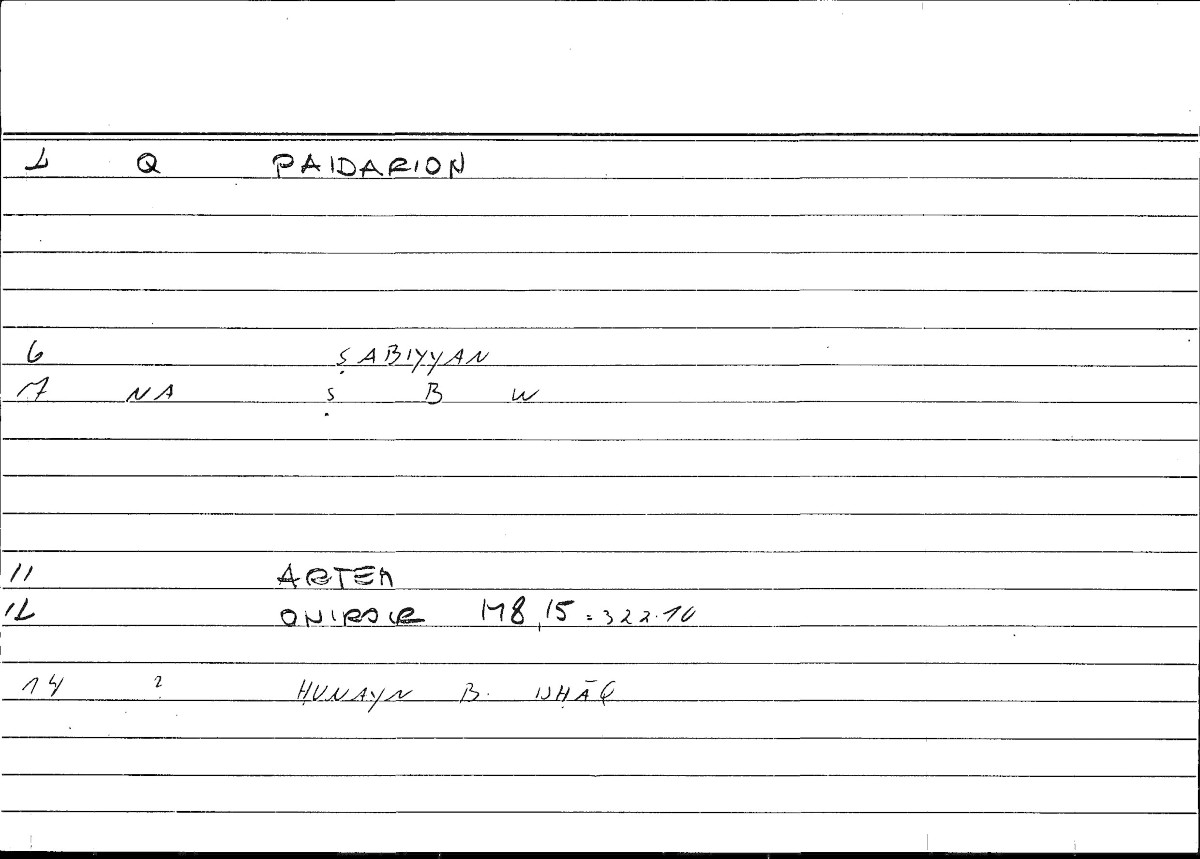 1 Q PAIDARION
6 ṢABIYYAN
7 NA Ṣ B W
11 ARTEM
12 ONIROCR 178,15 = 322.10
14 ? ḤUNAYN B. ISḤĀQ